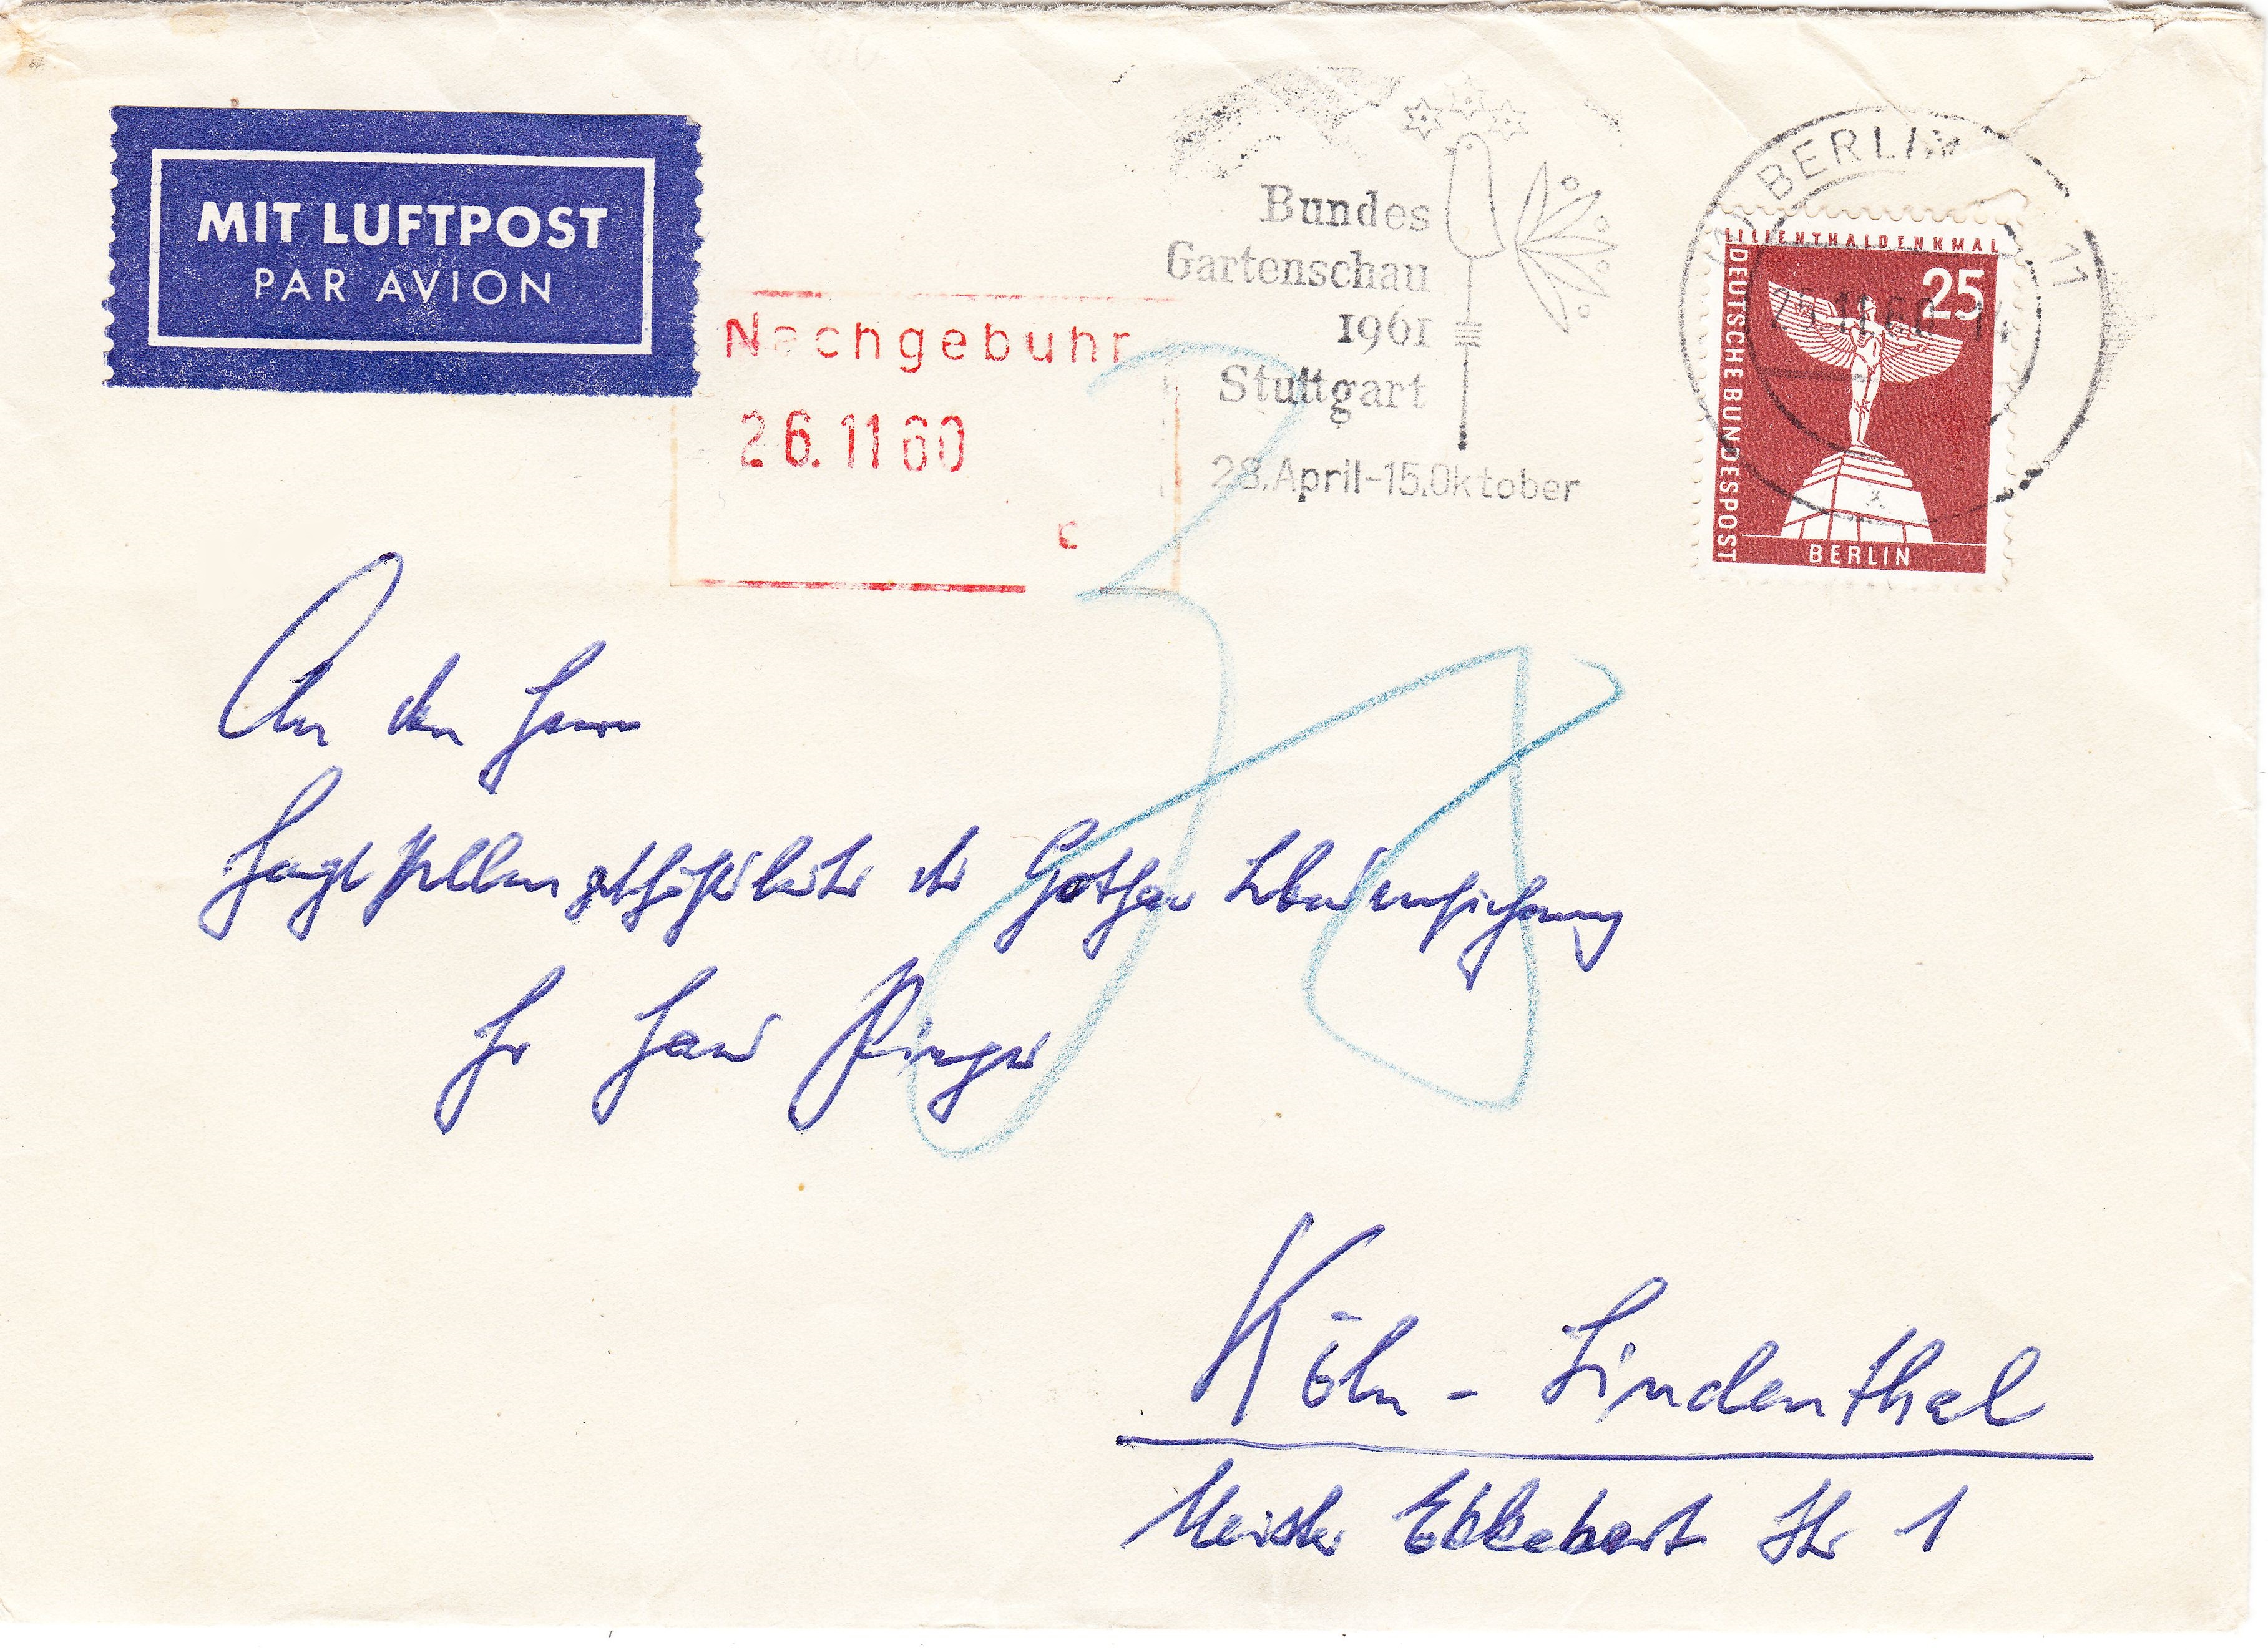 MIT LUFTPOST
PAR AVION
Nachgebühr
26.11 60
c
Bundes
Gartenschau
1961
Stuttgart
28.April-15.Oktober
BERLIN 11
25.11.60 - 14
LILIENTHALDENKMAL
DEUTSCHE BUNDESPOST
25
BERLIN
An den Herrn
Hauptstellengeschäftsleiter der Gothaer Lebensversicherung
Hr Hans
Köln - Lindenthal
Meister Ekkehart Str 1